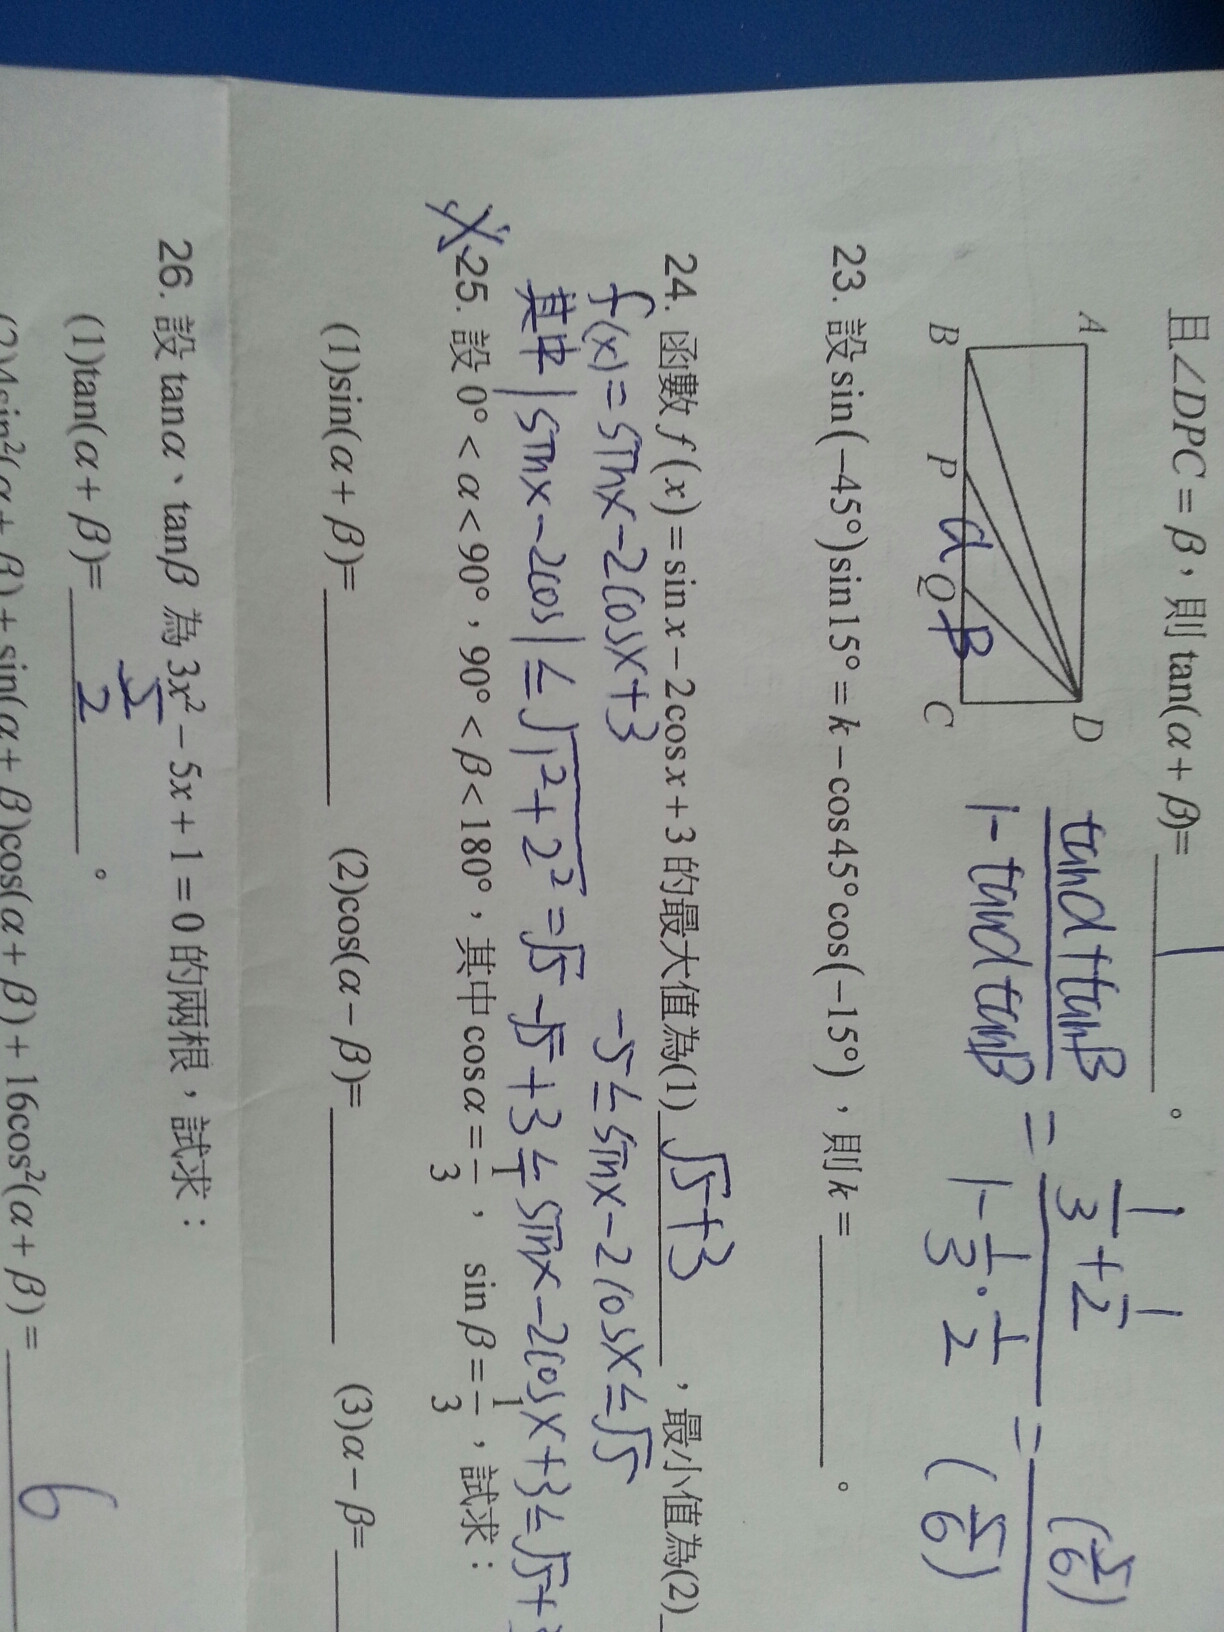 且∠DPC = β，則 tan(α + β) = 1 。
A D
B P α Q β C
tanα+tanβ / 1-tanαtanβ = 1/3 + 1/2 / 1 - 1/3 · 1/2 = (5/6) / (5/6)
23. 設 sin(−45°)sin15° = k − cos45°cos(−15°)，則 k = 。
24. 函數 f(x) = sin x − 2cos x + 3 的最大值為(1) √5+3 ，最小值為(2)
f(x) = sinx - 2cosx + 3
-5 ≤ sinx - 2cosx ≤ √5
其中 |sinx - 2cos| ≤ √1²+2² = √5 -√5 + 3 ≤ sinx - 2cosx + 3 ≤ √5 +
25. 設 0° < α < 90°，90° < β < 180°，其中 cos α = 1/3，sin β = 1/3，試求：
(1)sin(α + β)= (2)cos(α − β)= (3)α − β=
26. 設 tanα、tanβ 為 3x² − 5x + 1 = 0 的兩根，試求：
(1)tan(α + β)= 5/2 。
(2)4sin²(α + β) + sin(α + β)cos(α + β) + 16cos²(α + β) = 6